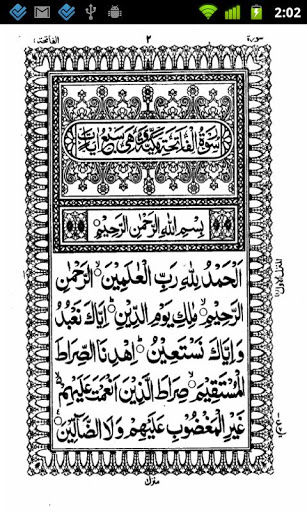 2:02
سورة ٢ الفاتحة ١
سُوْرَةُ الْفَاتِحَةِ مَكِّيَّةٌ وَّهِيَ سَبْعُ اٰيَاتٍ
بِسْمِ اللّٰهِ الرَّحْمٰنِ الرَّحِيْمِ
اَلْحَمْدُ لِلّٰهِ رَبِّ الْعٰلَمِيْنَ ۙ الرَّحْمٰنِ
الرَّحِيْمِ ۙ مٰلِكِ يَوْمِ الدِّيْنِ ؕ اِيَّاكَ نَعْبُدُ
وَ اِيَّاكَ نَسْتَعِيْنُ ؕ اِهْدِنَا الصِّرَاطَ
الْمُسْتَقِيْمَ ۙ صِرَاطَ الَّذِيْنَ اَنْعَمْتَ عَلَيْهِمْ ۙ
غَيْرِ الْمَغْضُوْبِ عَلَيْهِمْ وَلَا الضَّآلِّيْنَ
منزل